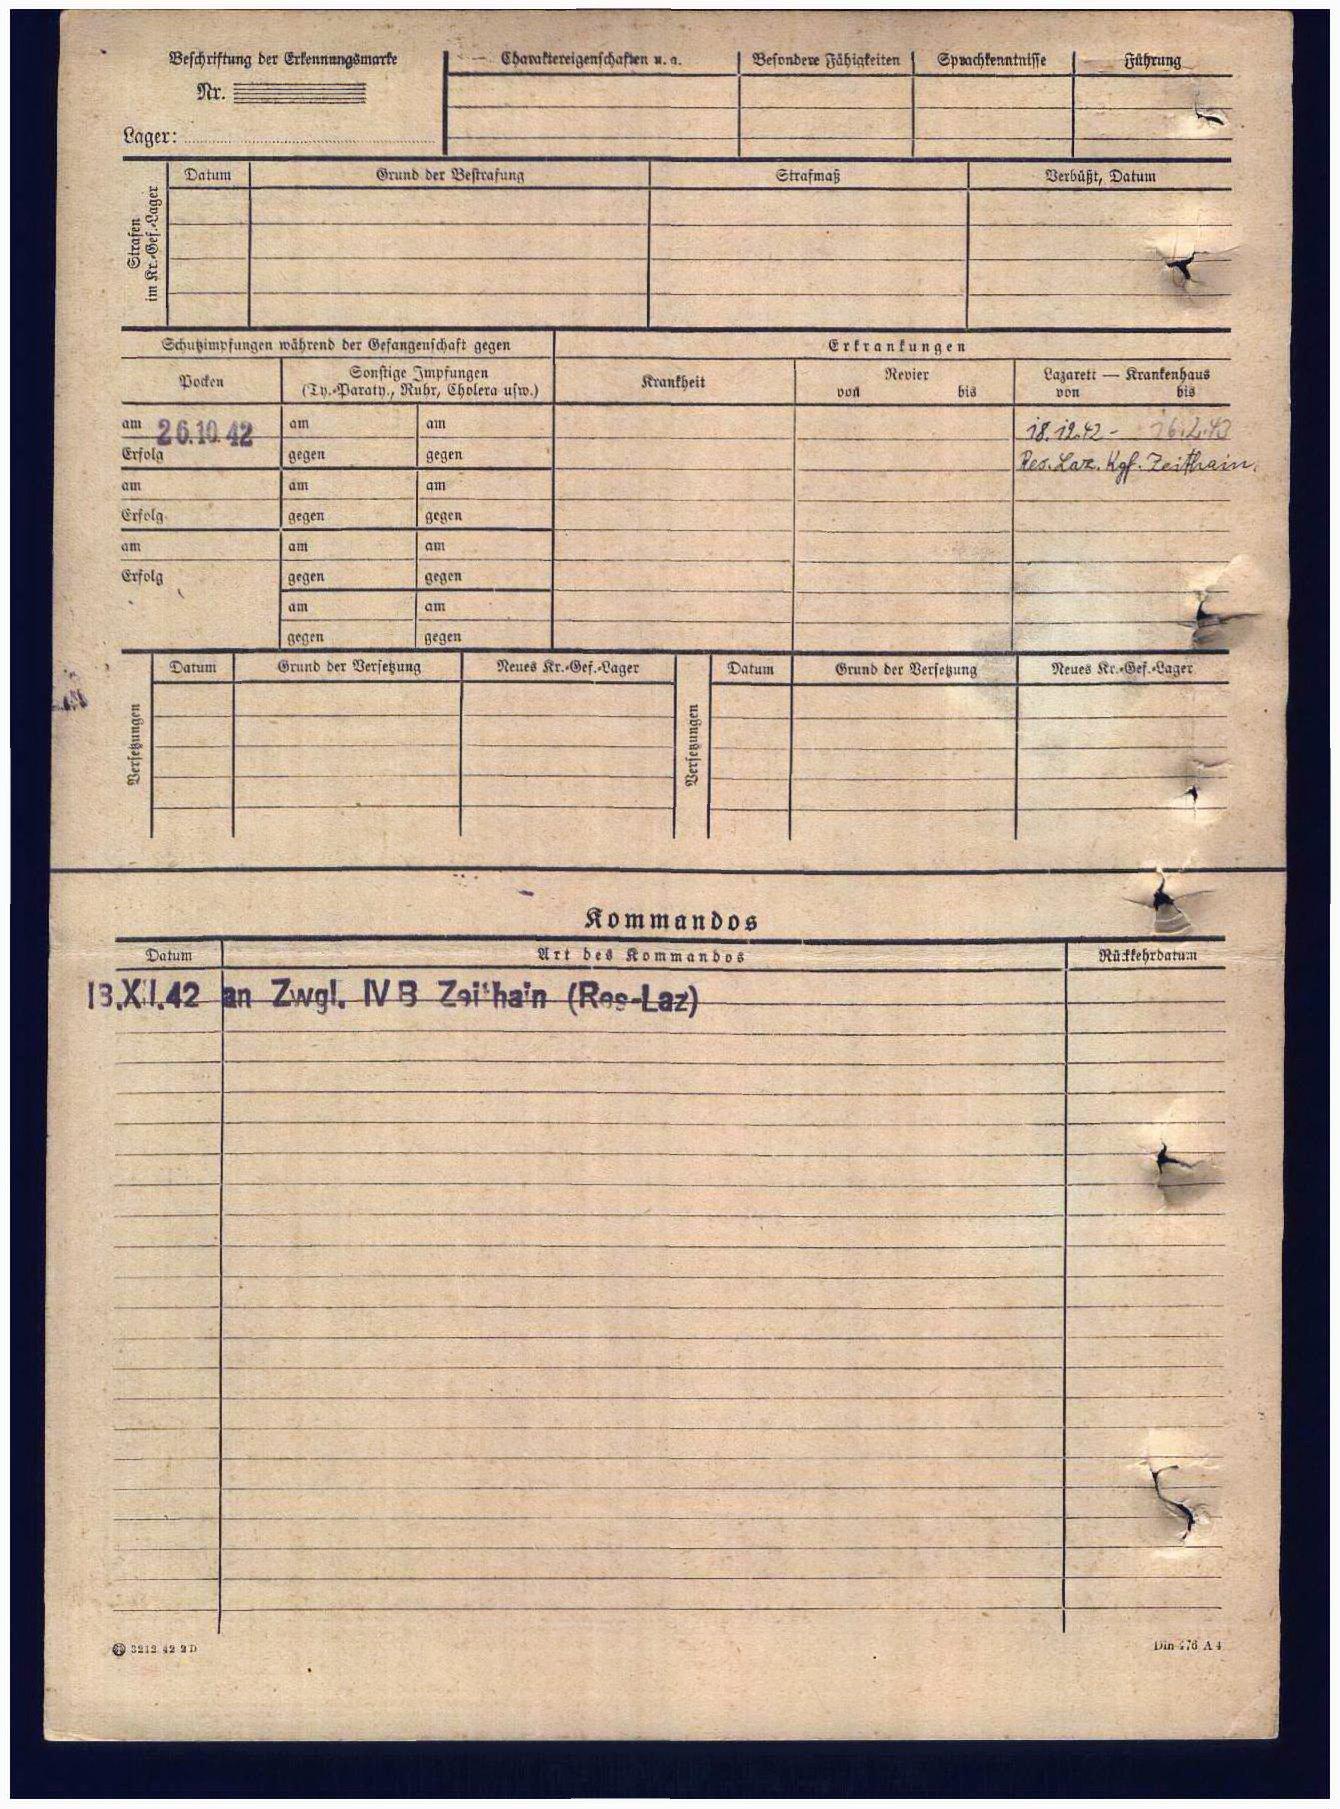 Beschriftung der Erkennungsmarke
Nr.
Lager:
Charaktereigenschaften u. a.
Besondere Fähigkeiten
Sprachkenntnisse
Führung
Strafen
im Kr.-Gef.-Lager
Datum
Grund der Bestrafung
Strafmaß
Verbüßt, Datum
Schutzimpfungen während der Gefangenschaft gegen
Erkrankungen
Pocken
Sonstige Impfungen
(Ty.-Paraty., Ruhr, Cholera usw.)
Krankheit
Revier
von bis
Lazarett — Krankenhaus
von bis
am 26.10.42 am am
18.12.42 - 16.2.43
Erfolg gegen gegen
Res. Laz. Kgf. Zeithain.
am am am
Erfolg gegen gegen
am am am
Erfolg gegen gegen
am am
gegen gegen
Versetzungen
Datum Grund der Versetzung Neues Kr.-Gef.-Lager
Versetzungen
Datum Grund der Versetzung Neues Kr.-Gef.-Lager
Kommandos
Datum Art des Kommandos Rückkehrdatum
18.XII.42 an Zwgl. IV B Zeithain (Res-Laz)
3212 42 2 D
Din 476 A 4